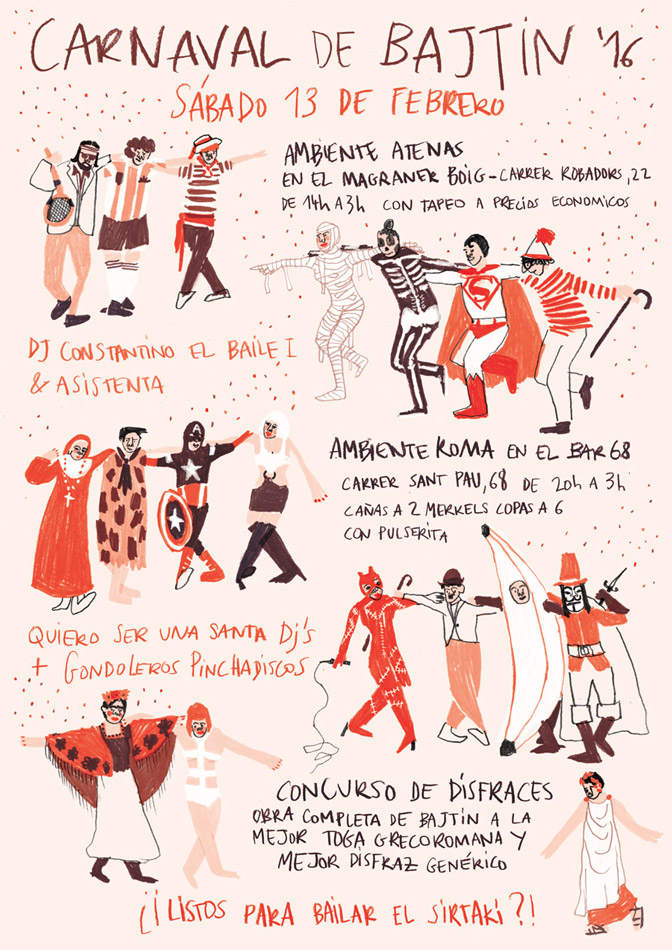 CARNAVAL DE BAJTÍN '16
SÁBADO 13 DE FEBRERO
AMBIENTE ATENAS
EN EL MAGRANER BOIG - CARRER ROBADORS, 22
DE 14h A 3h CON TAPEO A PRECIOS ECONOMICOS
DJ CONSTANTINO EL BAILE I
& ASISTENTA
AMBIENTE ROMA EN EL BAR 68
CARRER SANT PAU, 68 DE 20h A 3h
CAÑAS A 2 MERKELS COPAS A 6
CON PULSERITA
QUIERO SER UNA SANTA Dj's
+ GONDOLEROS PINCHADISCOS
CONCURSO DE DISFRACES
OBRA COMPLETA DE BAJTÍN A LA
MEJOR TOGA GRECOROMANA Y
MEJOR DISFRAZ GENÉRICO
¿¡LISTOS PARA BAILAR EL SIRTAKI?!